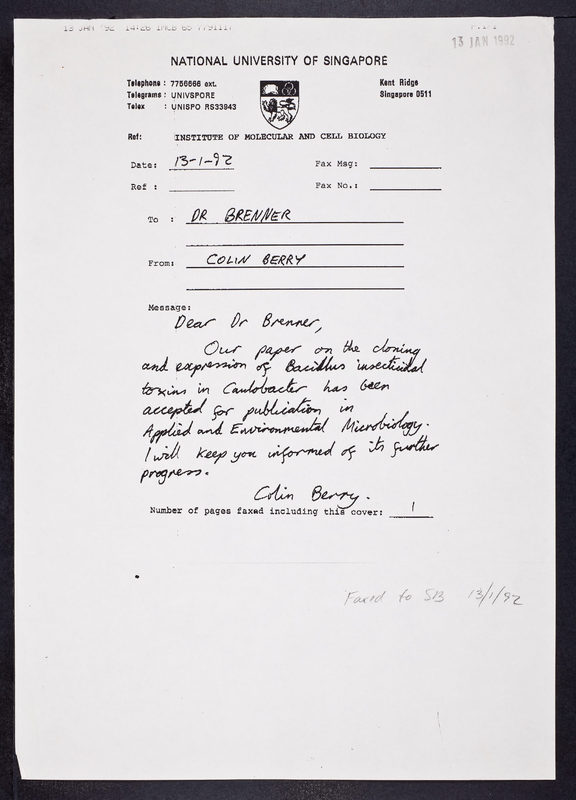 13 JAN '92 14:26 IMCB 65 7791117
P.1/1
13 JAN 1992
NATIONAL UNIVERSITY OF SINGAPORE
Telephone : 7756666 ext.
Telegrams : UNIVSPORE
Telex : UNISPO RS33943
Kent Ridge
Singapore 0511
Ref: INSTITUTE OF MOLECULAR AND CELL BIOLOGY
Date: 13-1-92 Fax Msg:
Ref : Fax No.:
To : DR BRENNER
From: COLIN BERRY
Message:
Dear Dr Brenner,
Our paper on the cloning
and expression of Bacillus insecticidal
toxins in Caulobacter has been
accepted for publication in
Applied and Environmental Microbiology.
I will keep you informed of its further
progress.
Colin Berry.
Number of pages faxed including this cover: 1
Faxed to SB 13/1/92